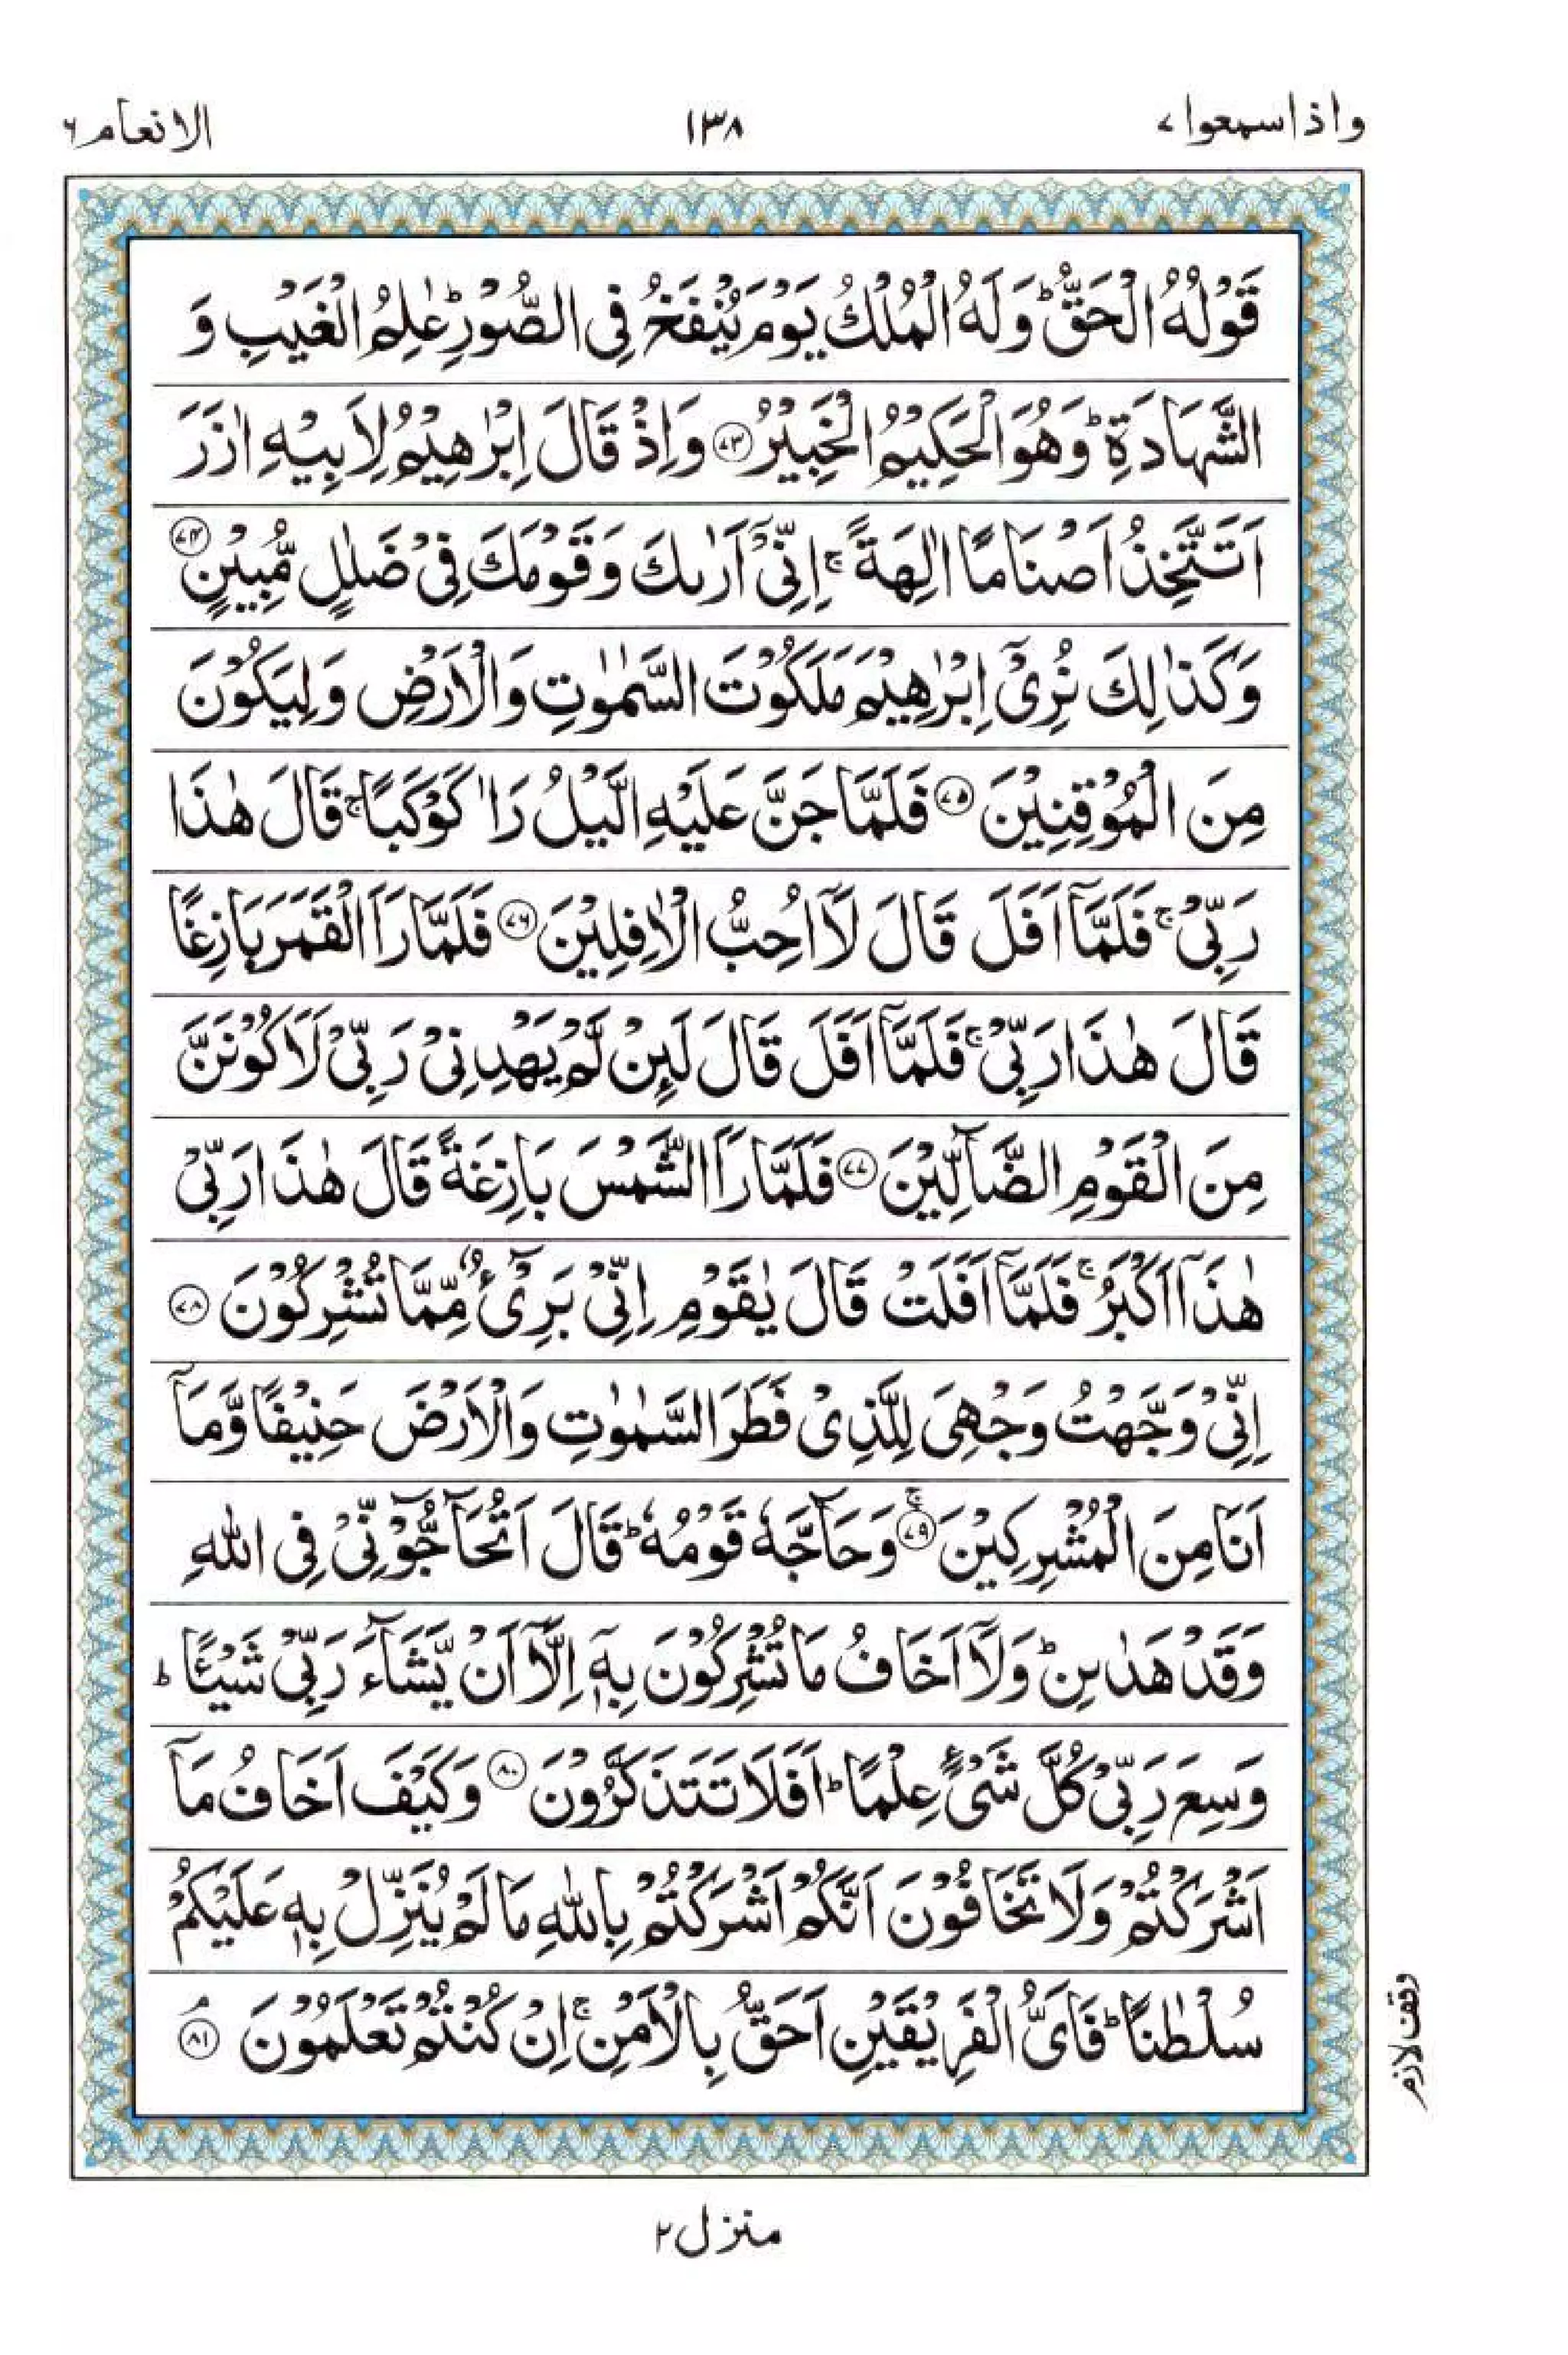 واذاسمعوا ۷
۱۳۸
الانعام ۶
قَوْلُهُ الْحَقُّ ؕ وَلَهُ الْمُلْكُ يَوْمَ يُنْفَخُ فِي الصُّوْرِ ؕ عٰلِمُ الْغَيْبِ وَ
الشَّهَادَةِ ؕ وَهُوَ الْحَكِيْمُ الْخَبِيْرُ ﴿۷۳﴾ وَاِذْ قَالَ اِبْرٰهِيْمُ لِاَبِيْهِ اٰزَرَ
اَتَتَّخِذُ اَصْنَامًا اٰلِهَةً ۚ اِنِّيْٓ اَرٰىكَ وَقَوْمَكَ فِيْ ضَلٰلٍ مُّبِيْنٍ ﴿۷۴﴾
وَكَذٰلِكَ نُرِيْٓ اِبْرٰهِيْمَ مَلَكُوْتَ السَّمٰوٰتِ وَالْاَرْضِ وَلِيَكُوْنَ
مِنَ الْمُوْقِنِيْنَ ﴿۷۵﴾ فَلَمَّا جَنَّ عَلَيْهِ الَّيْلُ رَاٰ كَوْكَبًا ۚ قَالَ هٰذَا
رَبِّيْ ۚ فَلَمَّآ اَفَلَ قَالَ لَآ اُحِبُّ الْاٰفِلِيْنَ ﴿۷۶﴾ فَلَمَّا رَاَ الْقَمَرَ بَازِغًا
قَالَ هٰذَا رَبِّيْ ۚ فَلَمَّآ اَفَلَ قَالَ لَئِنْ لَّمْ يَهْدِنِيْ رَبِّيْ لَاَكُوْنَنَّ
مِنَ الْقَوْمِ الضَّآلِّيْنَ ﴿۷۷﴾ فَلَمَّا رَاَ الشَّمْسَ بَازِغَةً قَالَ هٰذَا رَبِّيْ
هٰذَآ اَكْبَرُ ۚ فَلَمَّآ اَفَلَتْ قَالَ يٰقَوْمِ اِنِّيْ بَرِيْٓءٌ مِّمَّا تُشْرِكُوْنَ ﴿۷۸﴾
اِنِّيْ وَجَّهْتُ وَجْهِيَ لِلَّذِيْ فَطَرَ السَّمٰوٰتِ وَالْاَرْضَ حَنِيْفًا وَّمَآ
اَنَا مِنَ الْمُشْرِكِيْنَ ﴿۷۹﴾ۚ وَحَآجَّهٗ قَوْمُهٗ ؕ قَالَ اَتُحَآجُّوْٓنِّيْ فِي اللّٰهِ
وَقَدْ هَدٰىنِ ؕ وَلَآ اَخَافُ مَا تُشْرِكُوْنَ بِهٖٓ اِلَّآ اَنْ يَّشَآءَ رَبِّيْ شَيْـًٔا ؕ
وَسِعَ رَبِّيْ كُلَّ شَيْءٍ عِلْمًا ؕ اَفَلَا تَتَذَكَّرُوْنَ ﴿۸۰﴾ وَكَيْفَ اَخَافُ مَآ
اَشْرَكْتُمْ وَلَا تَخَافُوْنَ اَنَّكُمْ اَشْرَكْتُمْ بِاللّٰهِ مَا لَمْ يُنَزِّلْ بِهٖ عَلَيْكُمْ
سُلْطٰنًا ؕ فَاَيُّ الْفَرِيْقَيْنِ اَحَقُّ بِالْاَمْنِ ۚ اِنْ كُنْتُمْ تَعْلَمُوْنَ ﴿۸۱﴾ۘ
وقف لازم
منزل ۲